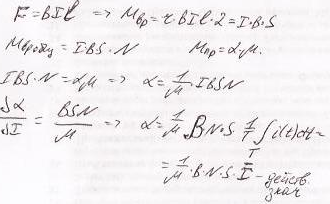 F = BIl => Mвр = r·BIl·2 = I·B·S
Mвроду = IBS·N Mпр = α·μ.
IBS·N = αμ => α = 1/μ · IBSN
dα/dI = BSN/μ => α = 1/μ BN·S 1/T ∫T i(t)dt =
= 1/μ · B·N·S· I̅ - действ.
знач